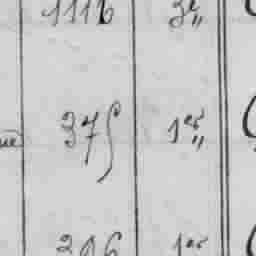 1116 3e „
375 1er „
206 1er